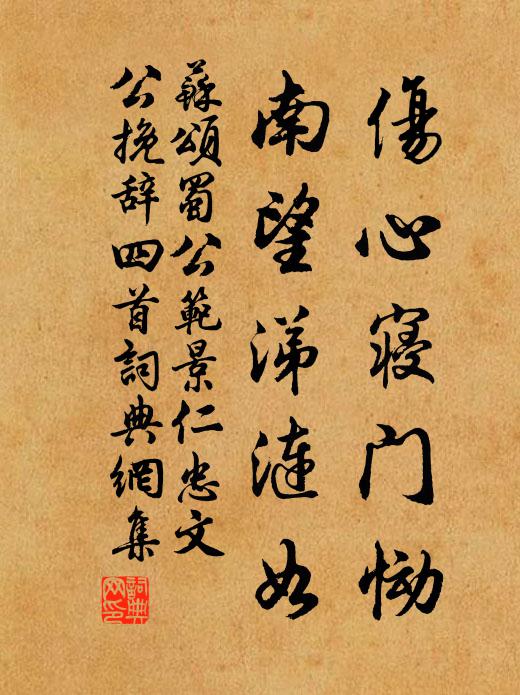 傷心寢門慟
南望涕漣如
蘇頌蜀公範景仁忠文
公挽辞四首詞典網集